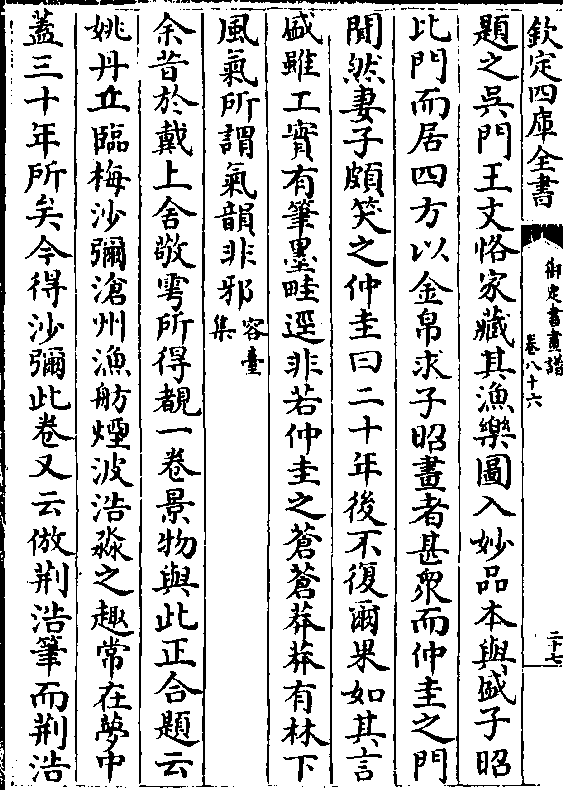 欽定四庫全書
御定書畫譜
卷八十六
二十七
題之吳門王文恪家藏其漁樂圖入妙品本與盛子昭
比門而居四方以金帛求子昭畫者甚衆而仲圭之門
闃然妻子頗笑之仲圭曰二十年後不復爾果如其言
盛雖工實有筆墨畦逕非若仲圭之蒼蒼莽莽有林下
風氣所謂氣韻非邪容臺集
余昔於戴上舍敬雩所得覩一卷景物與此正合題云
姚丹丘臨梅沙彌滄州漁舫煙波浩淼之趣常在夢中
蓋三十年所矣今得沙彌此卷又云倣荆浩筆而荆浩